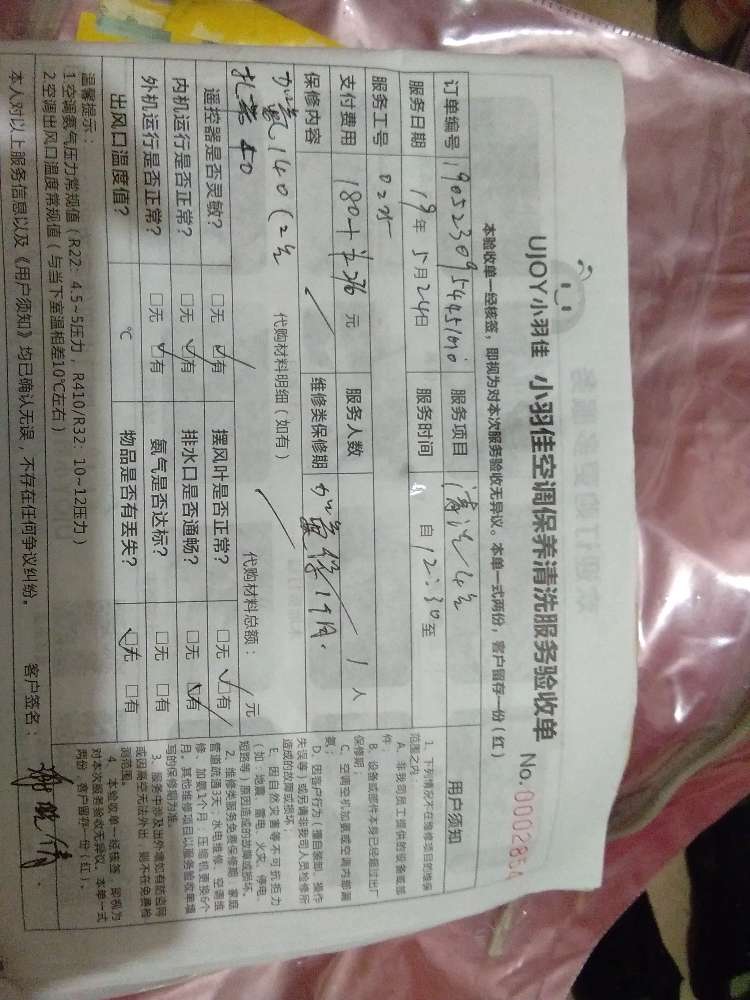 UJOY小羽佳 小羽佳空调保养清洗服务验收单 No.0002854
本验收单一经核签，即视为对本次服务验收无异议。本单一式两份，客户留存一份（红）
订单编号 服务项目 清洗4台
服务日期 19年5月24日 服务时间 自12:30至
服务工号 0225
支付费用 元 服务人数 1人
保修内容 维修类保修期
加氨140（2台 代购材料明细（如有） 代购材料总额： 元
遥控器是否灵敏？ □无 □有 摆风叶是否正常？ □无 □有
内机运行是否正常？ □无 □有 排水口是否通畅？ □无 □有
外机运行是否正常？ □无 □有 氨气是否达标？ □无 □有
出风口温度值？ ℃ 物品是否有丢失？ □无 □有
温馨提示：
1.空调氨气压力常规值（R22：4.5~5压力，R410/R32：10~12压力）
2.空调出风口温度常规值（与当下室温相差10℃左右）
本人对以上服务信息以及《用户须知》均已确认无误，不存在任何争议纠纷。 客户签名：
用户须知
1、下列情况不在维修项目的维保
范围之内：
A、非我司员工提供的设备或部
件；
B、设备或部件本身已经超过出厂
保修期；
C、空调空机加氨或空调内部漏
氨；
D、因客户行为（擅自装卸、操作
失误等）或另请非我司人员检修所
造成的故障或损坏；
E、因自然灾害等不可抗拒力
（如：地震、雷电、火灾、停电、
短路等）原因造成的故障或损坏。
2、维修类服务免费保修期：家庭
管道疏通3天；水电维修、空调维
修、加氨1个月；压缩机更换6个
月，其他维修项目以服务验收单填
写的保修期为准。
3、服务中涉及出外墙如有防盗网
或因高空无法外出，则不在免费检
测范围。
4、本验收单一经核签，即视为
对本次服务验收无异议。本单一式
两份，客户留存一份（红）。